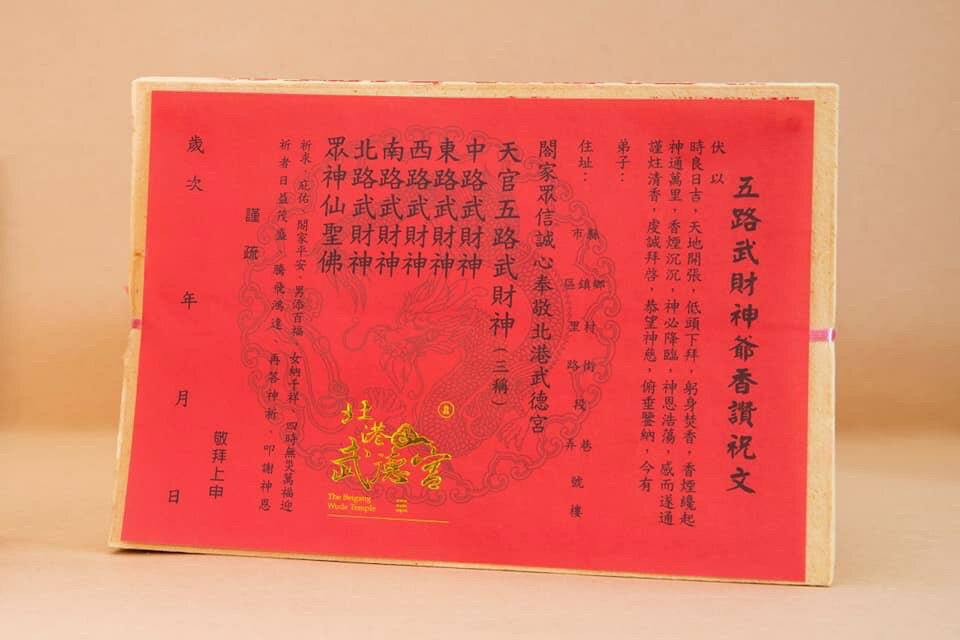 五路武財神爺香讚祝文
伏以
時良日吉，天地開張，低頭下拜，躬身焚香，香煙纔起
神通萬里，香煙沉沉，神必降臨，神恩浩蕩，感而遂通
謹炷清香，虔誠拜啓，恭望神慈，俯垂鑒納，今有
弟子：
住址：
縣 鄉 村 街 巷
市 鎮 段 號
區 里 路 弄 樓
閤家眾信誠心奉敬北港武德宮
天官五路武財神（三稱）
中路武財神
東路武財神
西路武財神
南路武財神
北路武財神
眾神仙聖佛
祈求、庇佑、閤家平安、男添百福、女納千祥、四時無災萬福迎
祈者日益茂盛、騰飛鴻達、再答神祈、叩謝神恩
謹疏
敬拜上申
歲次 年 月 日
北港武德宮
The Beigang
Wude Temple